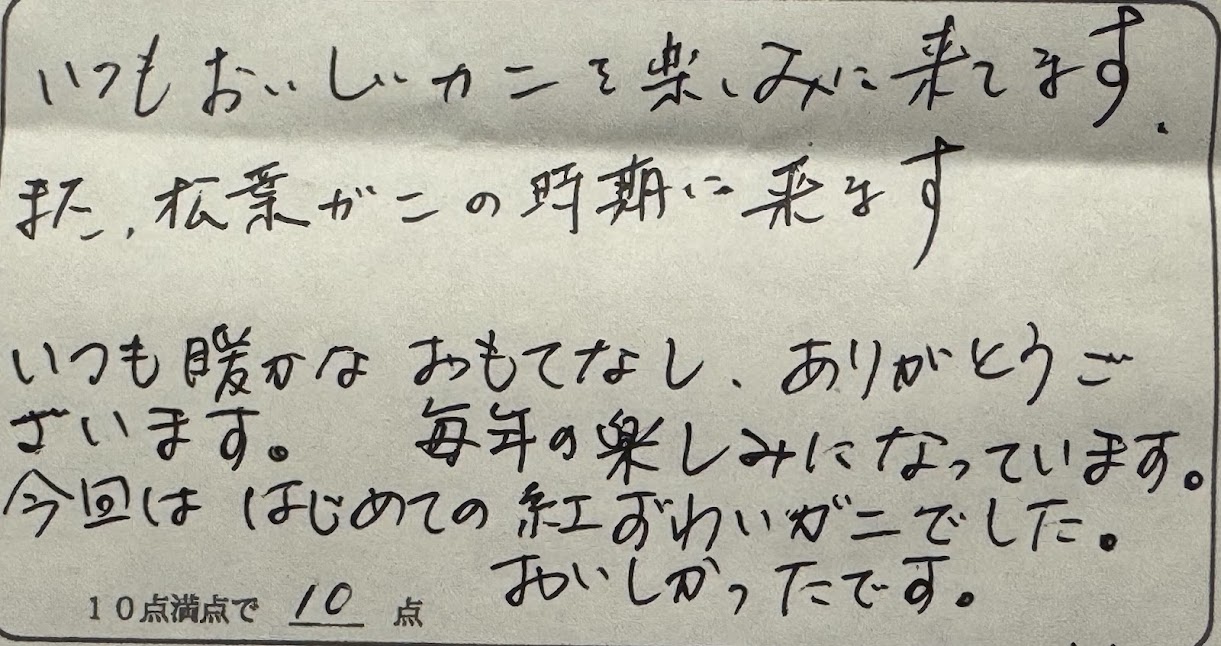 いつもおいしいカニを楽しみに来てます.
また,松葉がニの時期に来ます
いつも暖かな おもてなし、ありがとうご
ざいます。 毎年の楽しみになっています。
今回は はじめての 紅ずわいがニでした。
おいしかったです。
10点満点で 10 点